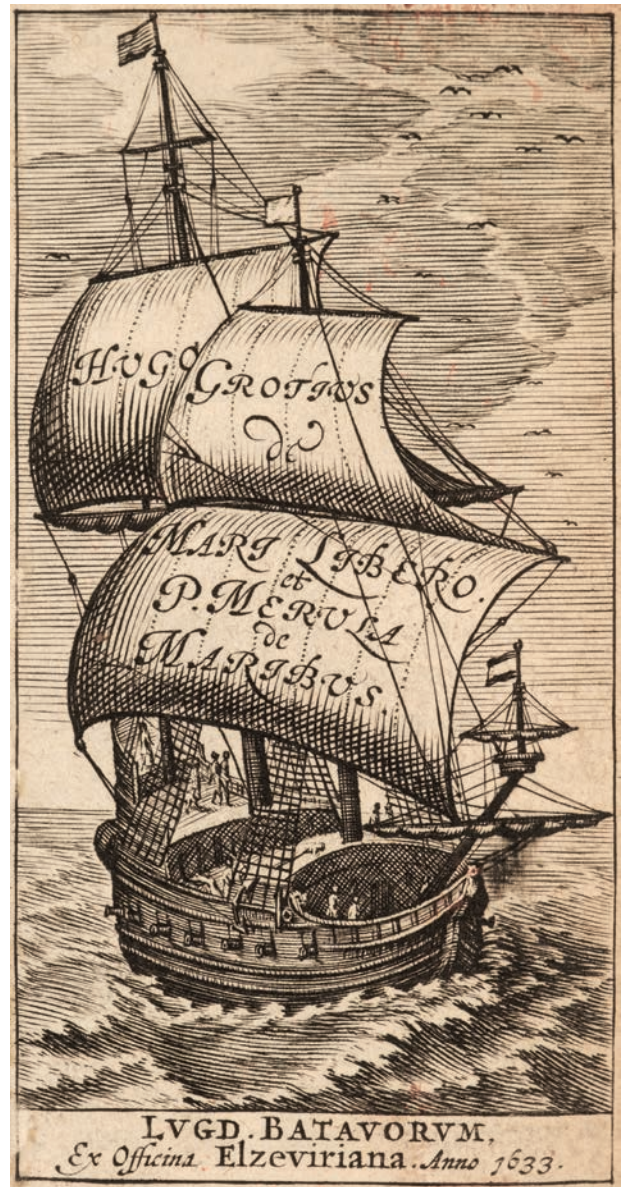 HVGO GROTIVS
de
MARI LIBERO.
et
P. MERVLA
de
MARIBVS.
LVGD. BATAVORVM,
Ex Officina Elzeviriana. Anno 1633.